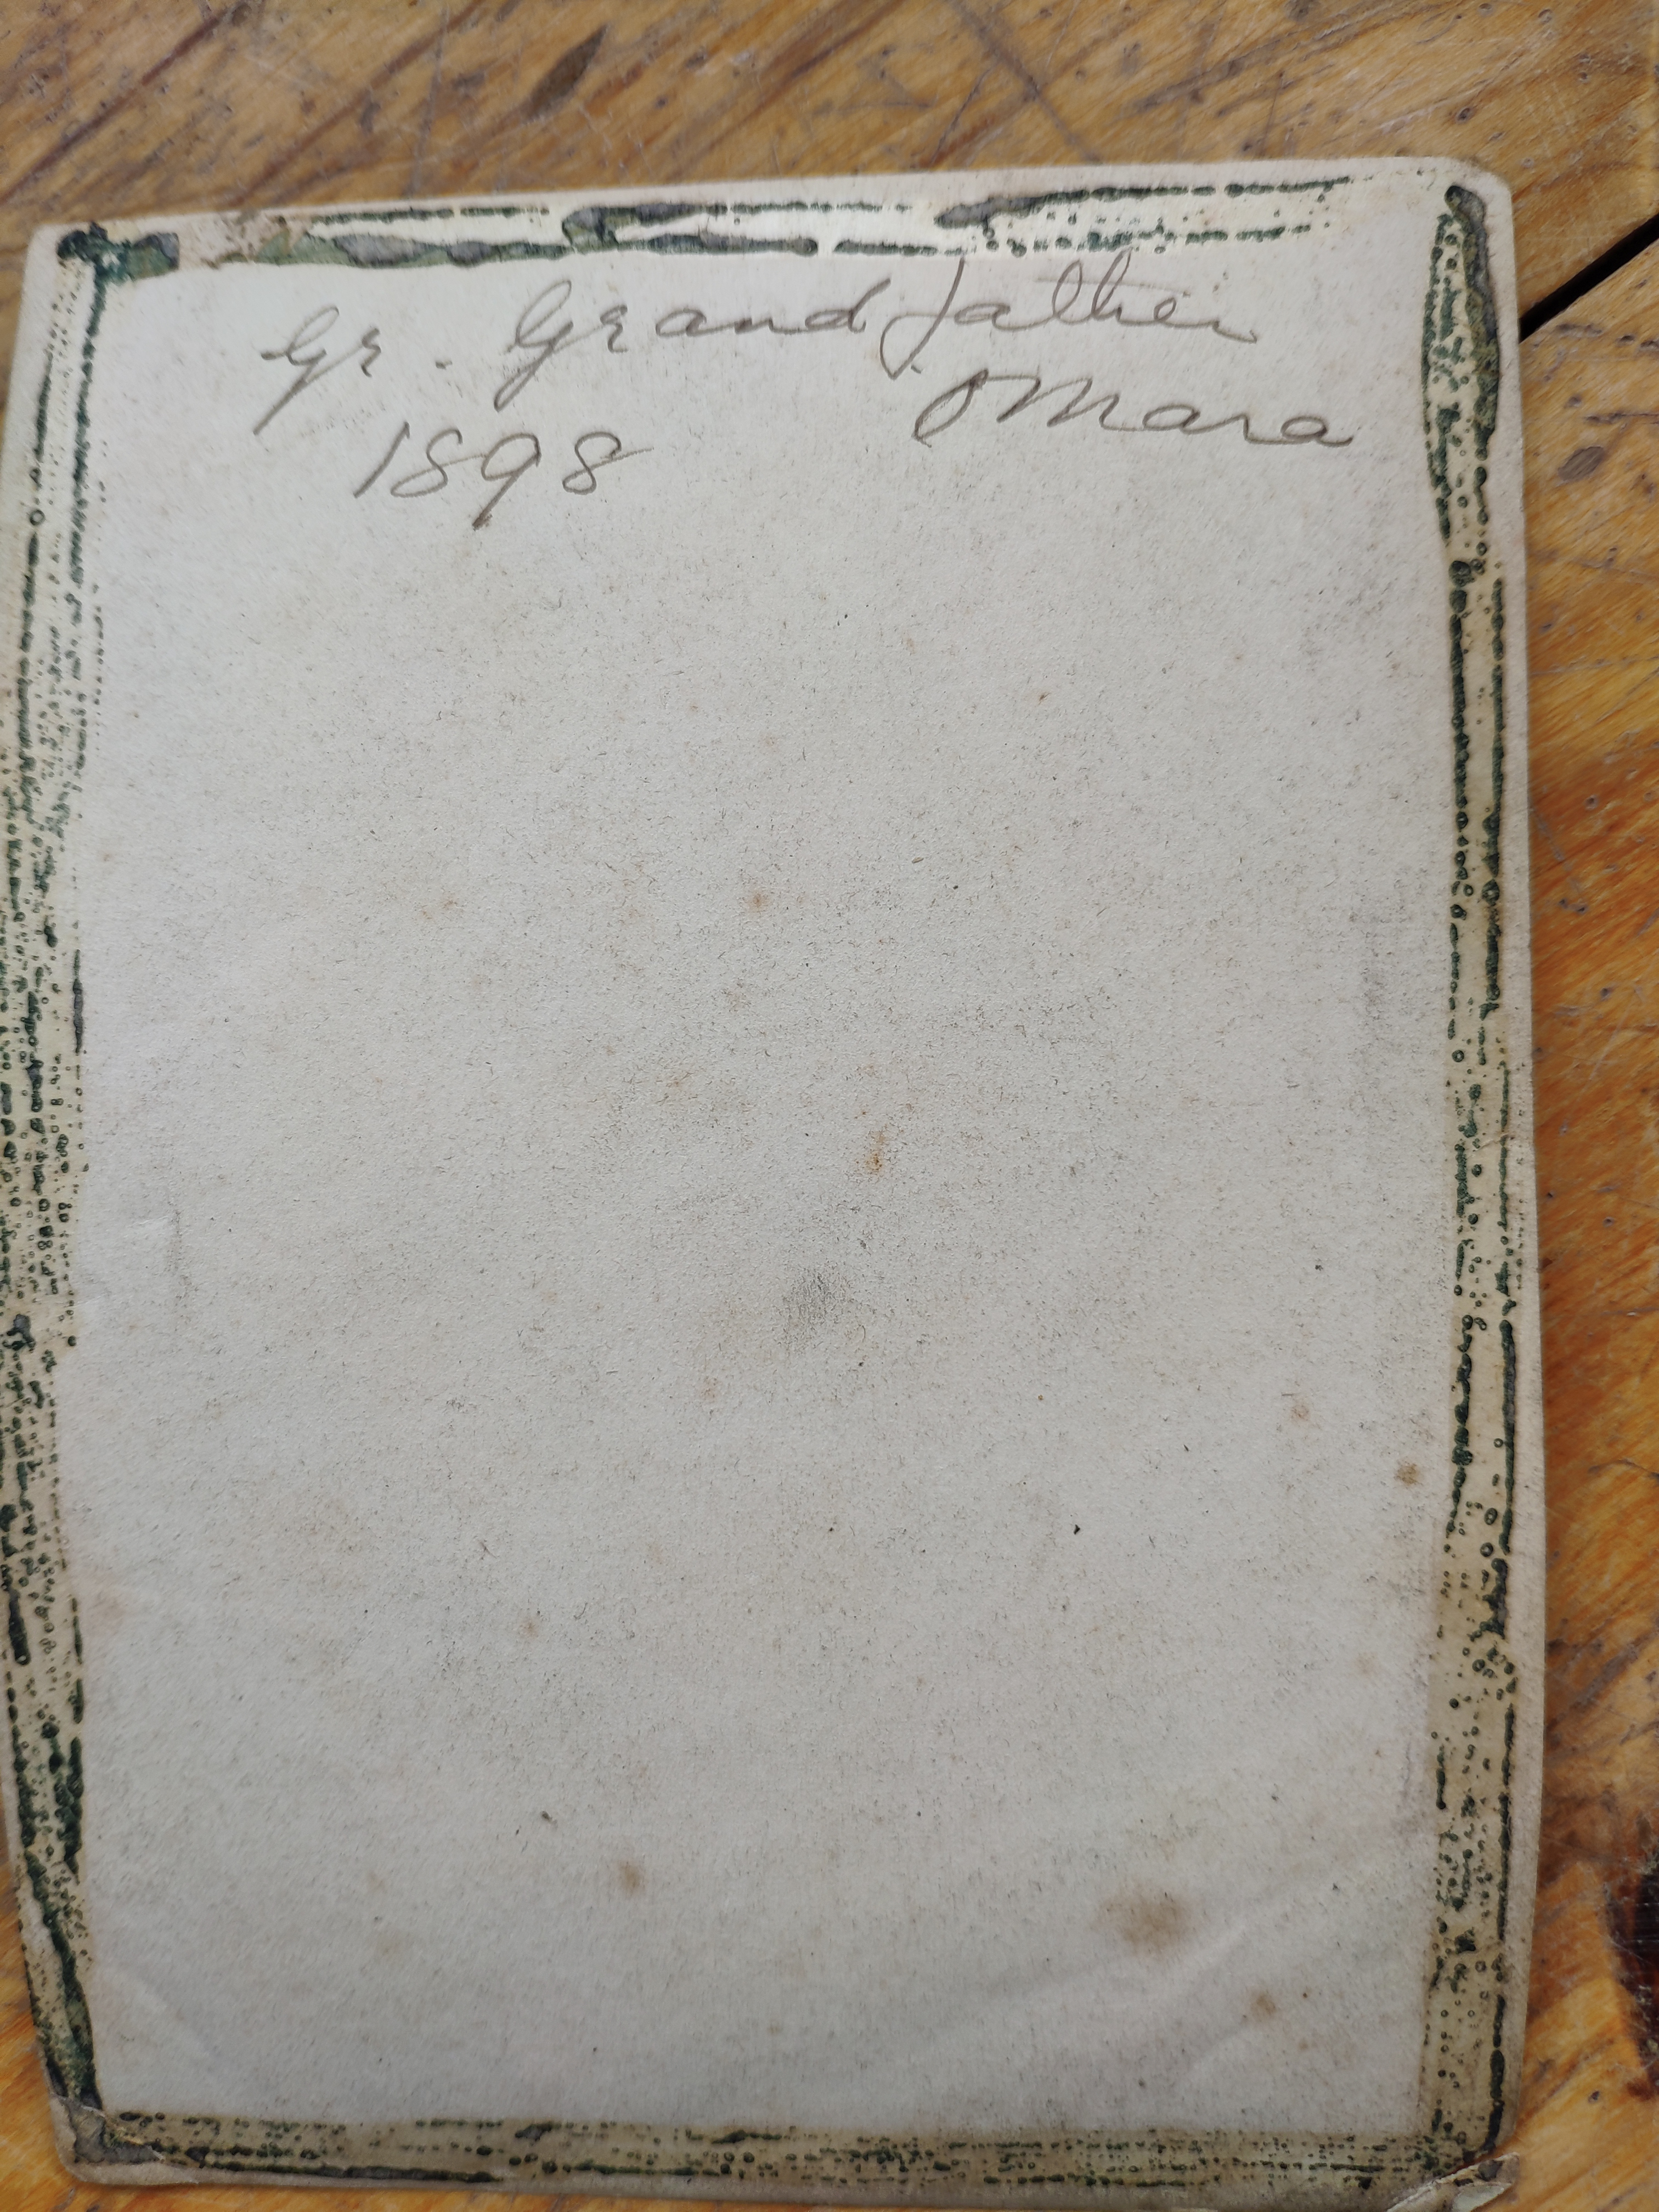 Gr. Grandfather
OMara
1898